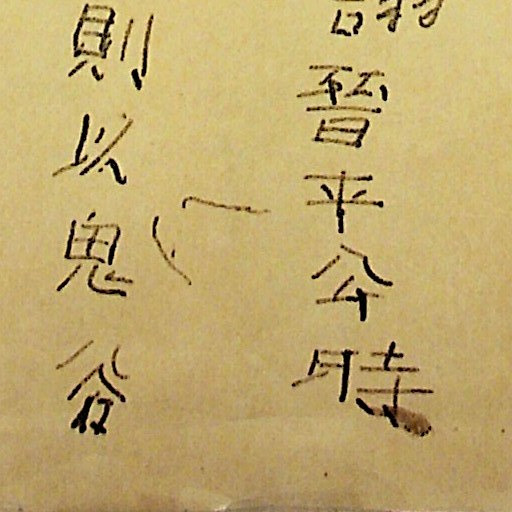 謝晉平公時
則以鬼谷